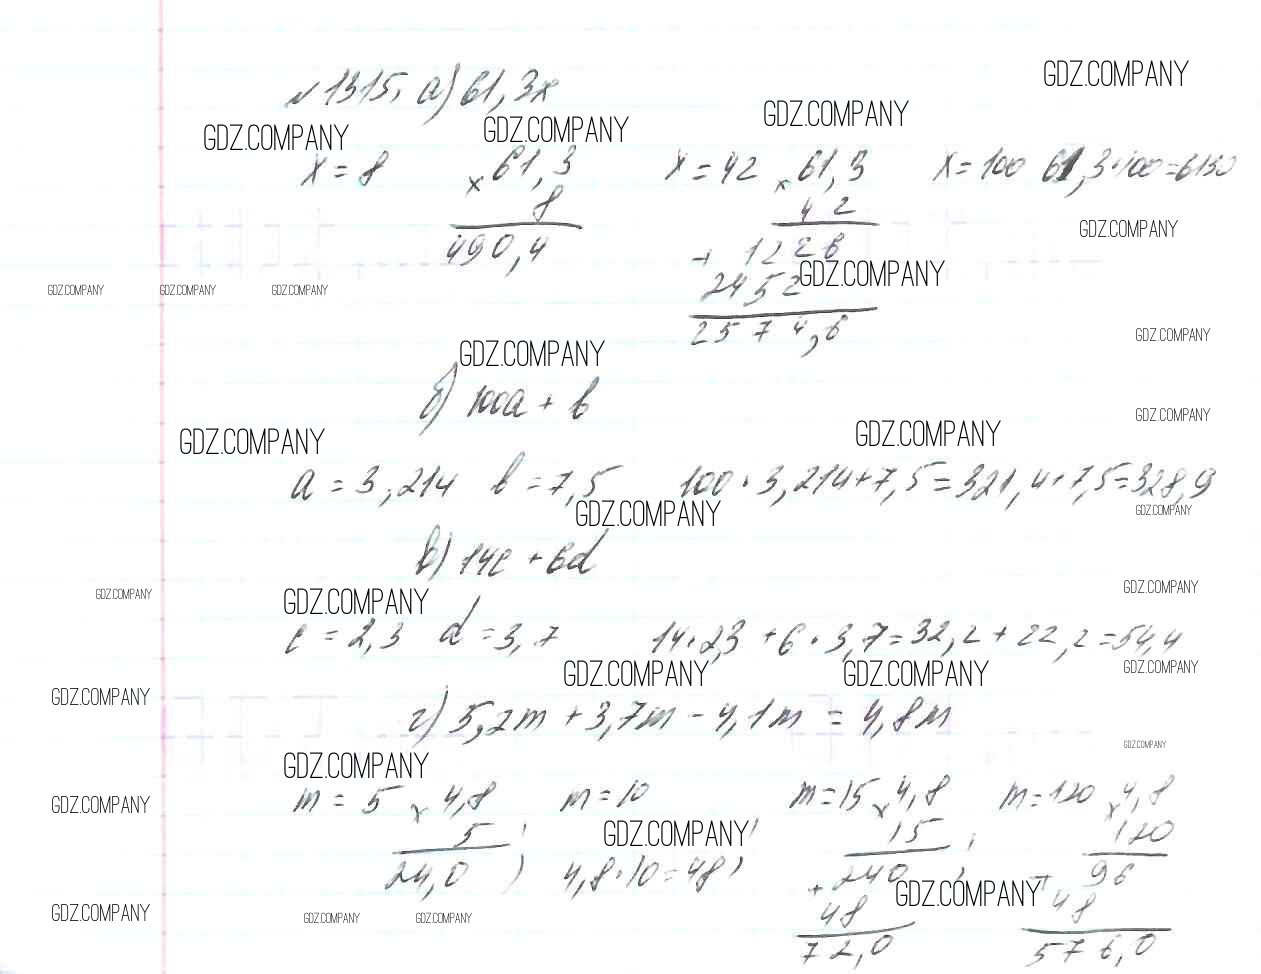 №1315. а) 61,3x
GDZ.COMPANY
GDZ.COMPANY
GDZ.COMPANY
GDZ.COMPANY
x = 8 × 61,3 x = 42 × 61,3 x = 100 61,3·100=6130
8 42
490,4 + 1226
GDZ.COMPANY
2452 GDZ.COMPANY
GDZ.COMPANY GDZ.COMPANY GDZ.COMPANY
2574,6
GDZ.COMPANY
GDZ.COMPANY
б) 100a + b
GDZ.COMPANY
GDZ.COMPANY
GDZ.COMPANY
a = 3,214 b = 7,5 100·3,214+7,5=321,4+7,5=328,9
GDZ.COMPANY
GDZ.COMPANY
в) 14c + 6d
GDZ.COMPANY
GDZ.COMPANY
GDZ.COMPANY
c = 2,3 d = 3,7 14·2,3 + 6·3,7=32,2+22,2=54,4
GDZ.COMPANY GDZ.COMPANY GDZ.COMPANY
GDZ.COMPANY
г) 5,2m + 3,7m - 4,1m = 4,8m
GDZ.COMPANY
GDZ.COMPANY
m = 5 × 4,8 m = 10 m = 15 × 4,8 m = 120 × 4,8
GDZ.COMPANY
5 ; GDZ.COMPANY 15 ; 120
24,0 4,8·10=48 + 240 + 96
GDZ.COMPANY
GDZ.COMPANY GDZ.COMPANY GDZ.COMPANY
48 48
72,0 576,0